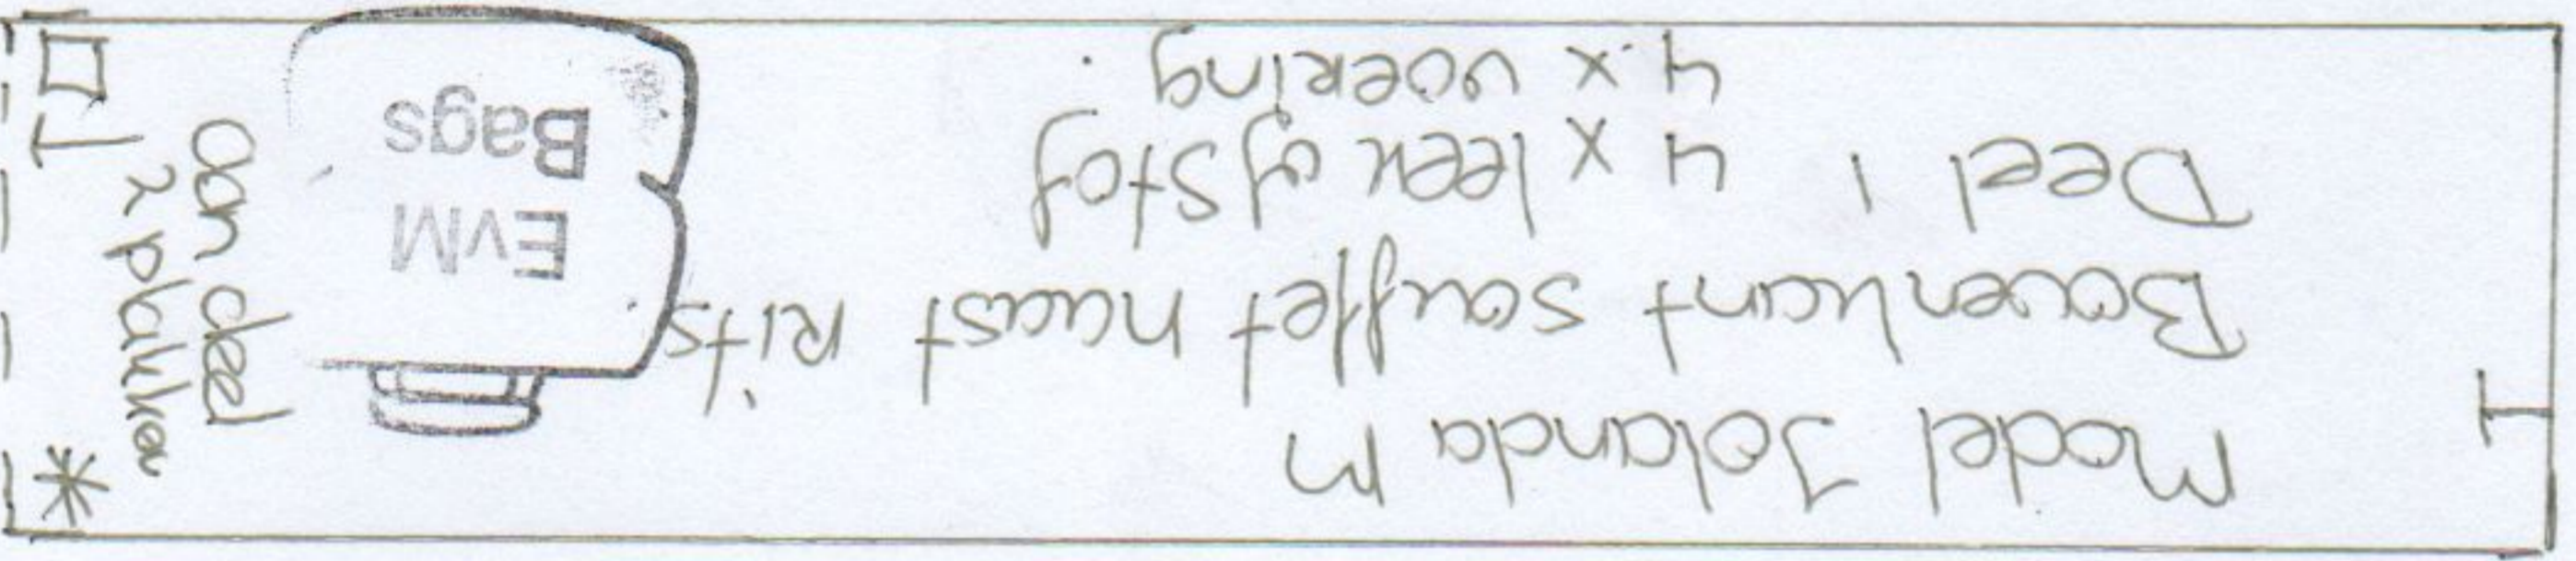 Model Jolanda M
Bovenkant soufflet naast Rits.
Deel 1 4 x leer of stof
4 x voering.
EvM
Bags
aan deel
2 plakken